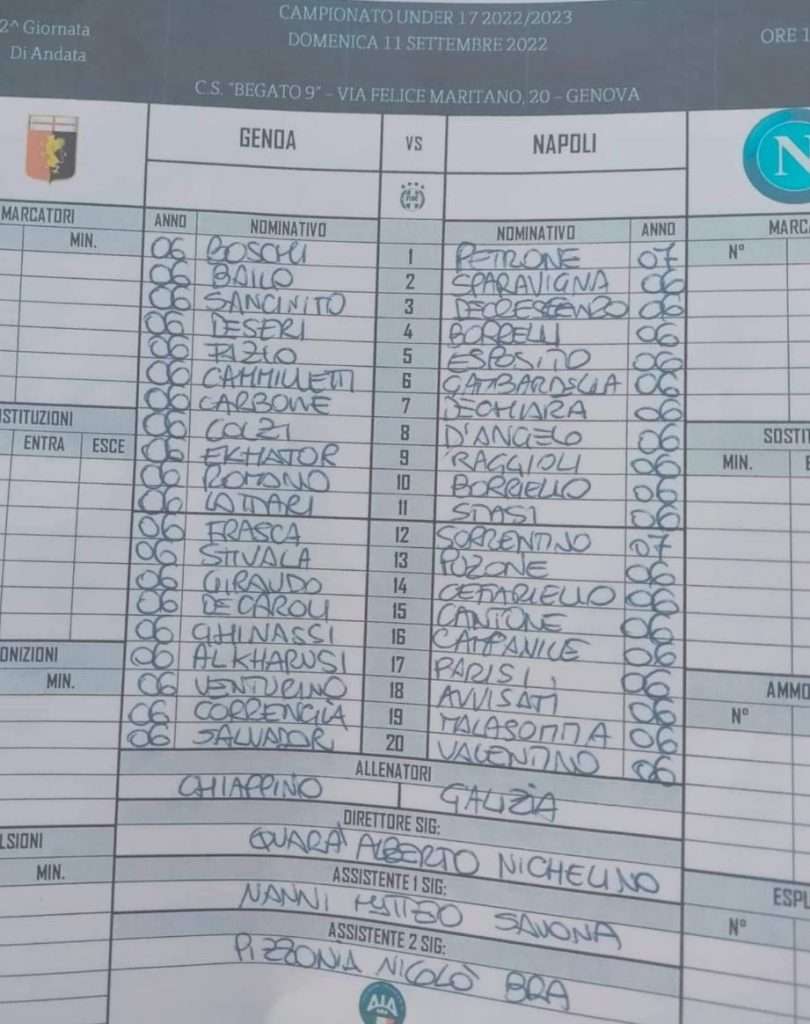 2^ Giornata
Di Andata
CAMPIONATO UNDER 17 2022/2023
DOMENICA 11 SETTEMBRE 2022
ORE 1
C.S. "BEGATO 9" – VIA FELICE MARITANO, 20 – GENOVA
GENOA VS NAPOLI
N
MARCATORI ANNO NOMINATIVO NOMINATIVO ANNO MARCA
MIN. N°
06 BOSCHI 1 PETRONE 07
06 BAILO 2 SPARAVIGNA 06
06 SANCINITO 3 DECRESCENZO 06
06 DESERI 4 BORRELLI 06
06 RIZIO 5 ESPOSITO 06
06 CAMMILLETTI 6 GAMBARDELLA 06
06 CARBONE 7 DECHIARA 06
06 COLZI 8 D'ANGELO 06
06 EKHATOR 9 RAGGIOLI 06
06 ROMANO 10 BORRIELLO 06
06 LATTARI 11 STASI 06
06 FRASCA 12 SORRENTINO 07
06 STIVALA 13 POZONE 06
06 GIRAUDO 14 CEFARIELLO 06
06 DECAROLI 15 CANTONE 06
06 GHINASSI 16 CAMPANILE 06
06 ALKHARUSI 17 PARISI 06
06 VENTURINO 18 AVVISATI 06
06 CORRENGIA 19 MALASOMMA 06
06 SALVADOR 20 VALENTINO 06
OSTITUZIONI
ENTRA ESCE
SOSTIT
MIN. E
ONIZIONI
MIN.
AMMO
N°
ALLENATORI
CHIAPPINO GALIZIA
DIRETTORE SIG:
QUARÀ ALBERTO NICHELINO
LSIONI
MIN.
ASSISTENTE 1 SIG:
NANNI MATTEO SAVONA
ESPU
N°
ASSISTENTE 2 SIG:
PIZZONIA NICOLÒ BRA
AIA